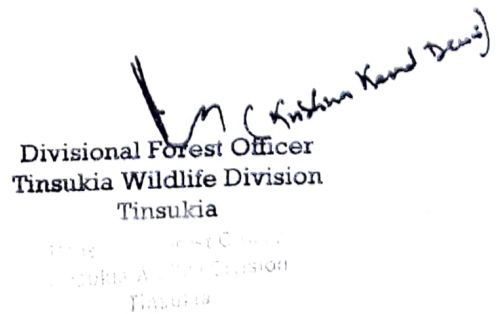 (Krishna Kamal Deuri)
Divisional Forest Officer
Tinsukia Wildlife Division
Tinsukia
Division
Tinsukia